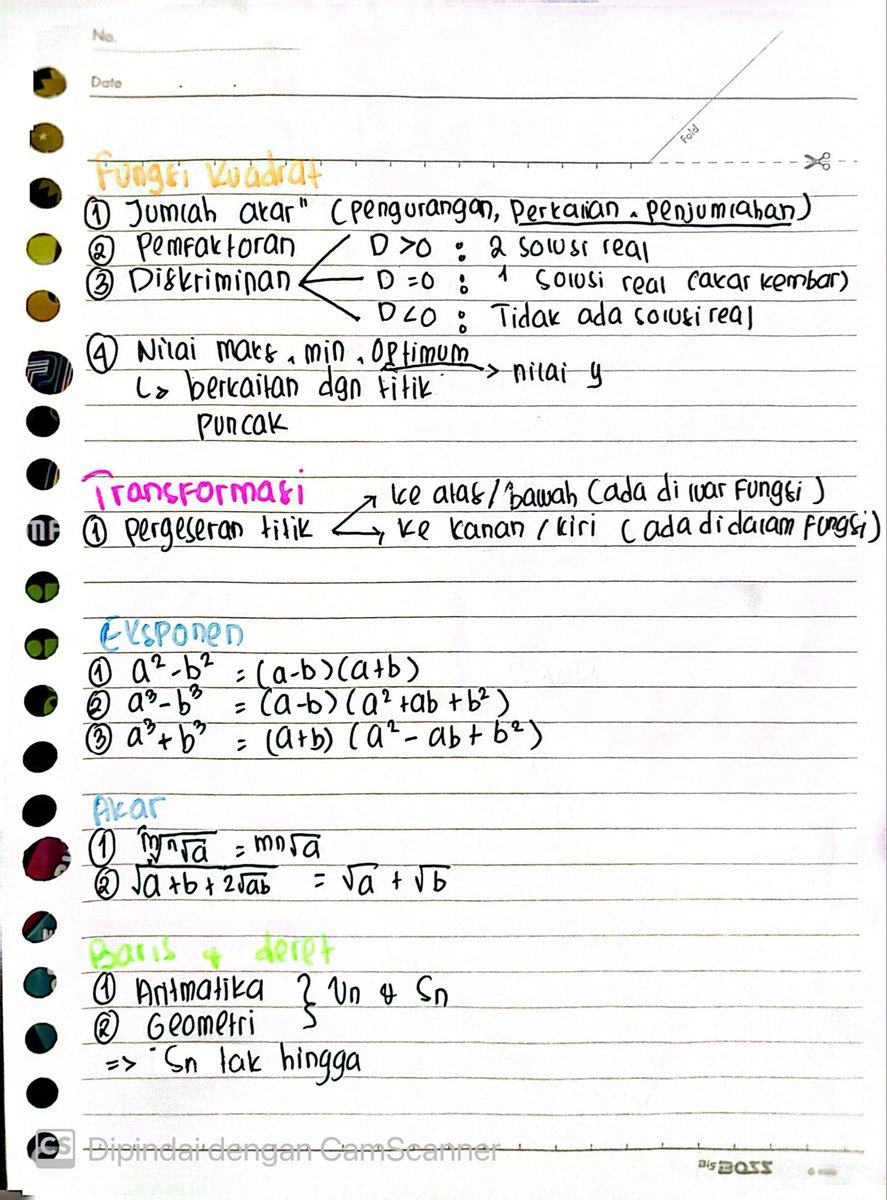 No.
Date
Fold
Fungsi Kuadrat
① Jumlah akar" (pengurangan, Perkalian, penjumlahan)
② Pemfaktoran
D > 0 : 2 solusi real
③ Diskriminan
D = 0 : 1 solusi real (akar kembar)
D < 0 : Tidak ada solusi real
④ Nilai maks, min, Optimum
↳ berkaitan dgn titik → nilai y
puncak
Transformasi
ke atas / bawah (ada di luar Fungsi)
① pergeseran titik
ke kanan / kiri (ada di dalam Fungsi)
Eksponen
① a² - b² = (a-b)(a+b)
② a³ - b³ = (a-b)(a² + ab + b²)
③ a³ + b³ = (a+b)(a² - ab + b²)
Akar
① ᵐ√ⁿ√a = ᵐⁿ√a
② √(a + b + 2√ab) = √a + √b
Baris & deret
① Aritmatika } Un & Sn
② Geometri
=> Sn tak hingga
CS Dipindai dengan CamScanner
Big BOSS